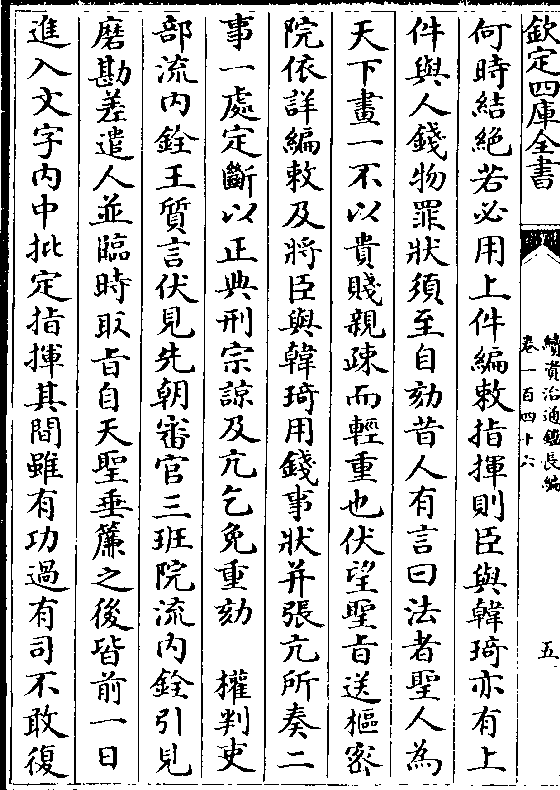 欽定四庫全書
續資治通鑑長編
卷一百四十六
五
何時結絶若必用上件編敕指揮則臣與韓琦亦有上
件與人錢物罪狀須至自劾昔人有言曰法者聖人為
天下畫一不以貴賤親疎而輕重也伏望聖旨送樞密
院依詳編敕及將臣與韓琦用錢事狀并張亢所奏二
事一處定斷以正典刑宗諒及亢乞免重劾　權判吏
部流内銓王質言伏見先朝審官三班院流内銓引見
磨勘差遣人並臨時取旨自天聖垂簾之後皆前一日
進入文字内中批定指揮其間雖有功過有司不敢復